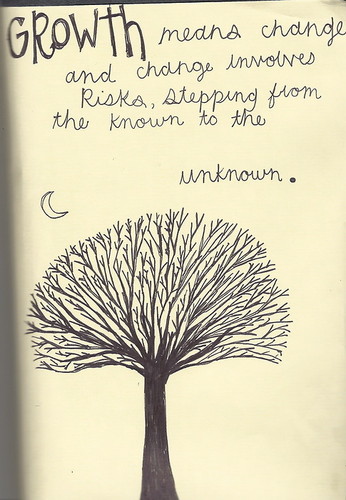 GROWTH means change
and change involves
Risks, stepping from
the known to the
unknown.